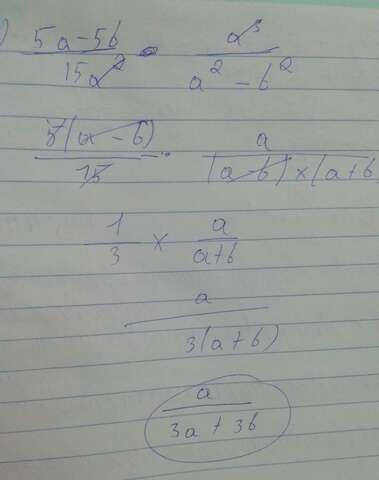 ) (5a-5b)/(15a²) · a³/(a² - b²)
5(a - b)/15 · a/((a-b)×(a+b
1/3 × a/(a+b)
a/(3(a+b))
a/(3a + 3b)